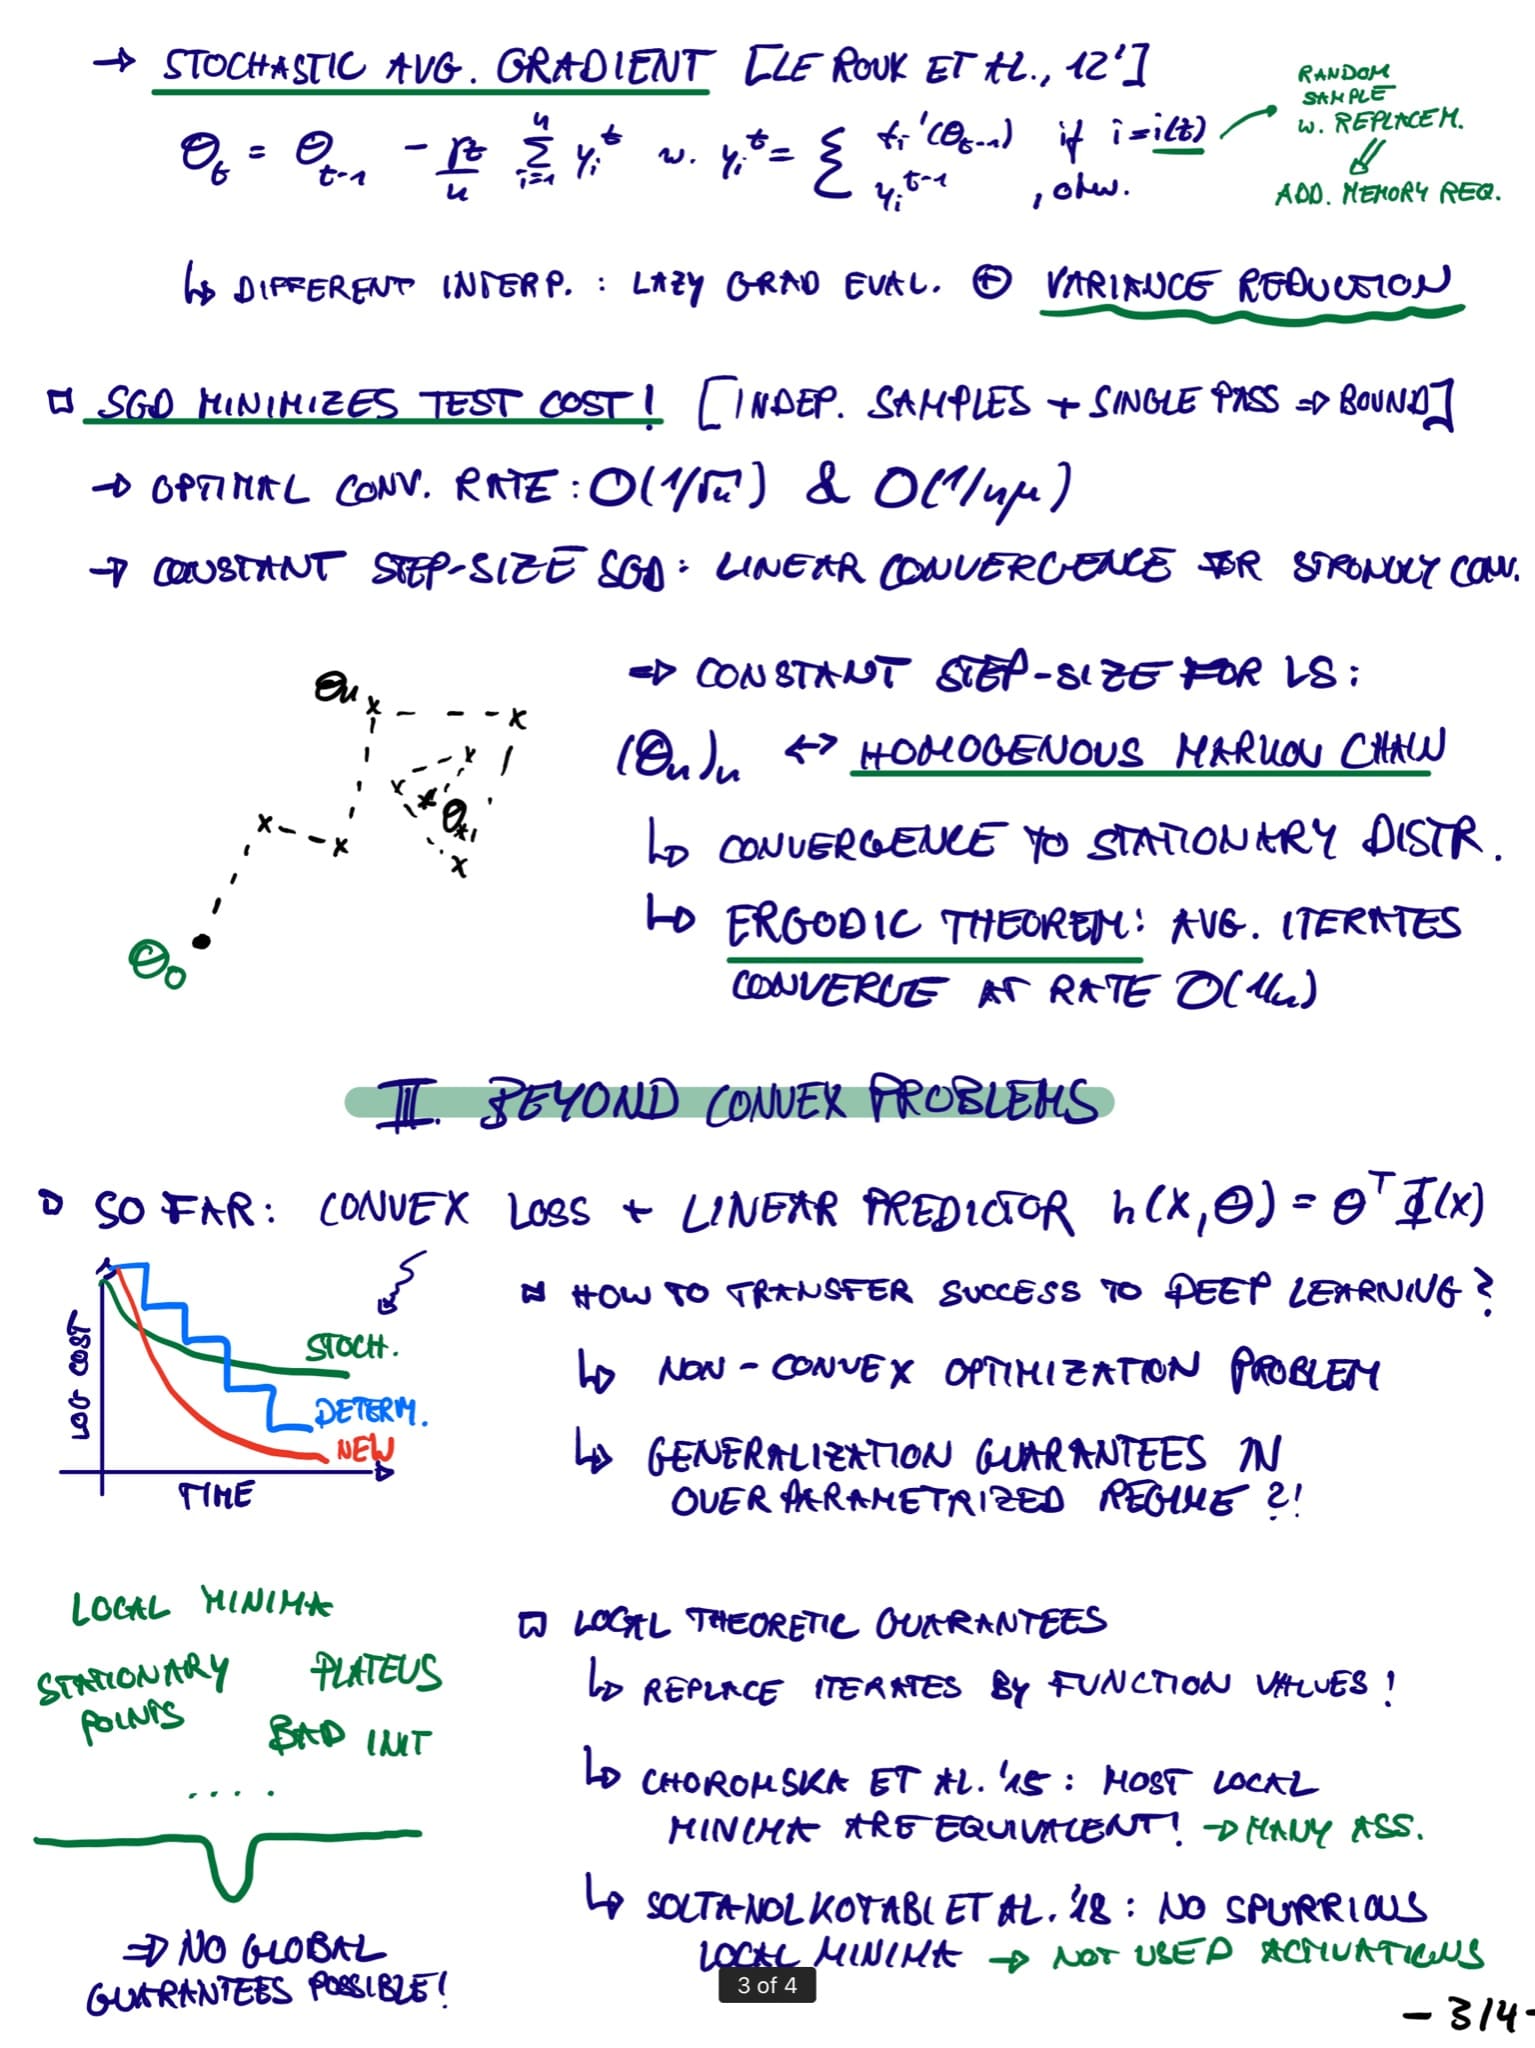 → STOCHASTIC AVG. GRADIENT [LE ROUX ET AL., 12']
RANDOM
SAMPLE
W. REPLACEM.
⇓
ADD. MEMORY REQ.
θ_t = θ_{t-1} - γ_t/n Σ_{i=1}^{n} y_i^t w. y_i^t = { f_i'(θ_{t-1}) if i = i(t)
y_i^{t-1} , otw.
↳ DIFFERENT INTERP. : LAZY GRAD EVAL. ⊕ VARIANCE REDUCTION
□ SGD MINIMIZES TEST COST! [INDEP. SAMPLES + SINGLE PASS ⇒ BOUND]
→ OPTIMAL CONV. RATE : O(1/√n) & O(1/nμ)
→ CONSTANT STEP-SIZE SGD : LINEAR CONVERGENCE FOR STRONGLY CONV.
θ_n
θ_*
θ_0
⇒ CONSTANT STEP-SIZE FOR LS :
(θ_n)_n ↔ HOMOGENOUS MARKOV CHAIN
↳ CONVERGENCE TO STATIONARY DISTR.
↳ ERGODIC THEOREM : AVG. ITERATES
CONVERGE AT RATE O(1/n)
III. BEYOND CONVEX PROBLEMS
□ SO FAR : CONVEX LOSS + LINEAR PREDICTOR h(x,θ) = θ^T Φ(x)
LOG COST
STOCH.
DETERM.
NEW
TIME
□ HOW TO TRANSFER SUCCESS TO DEEP LEARNING ?
↳ NON-CONVEX OPTIMIZATION PROBLEM
↳ GENERALIZATION GUARANTEES IN
OVERPARAMETRIZED REGIME ?!
LOCAL MINIMA
STATIONARY
POINTS
PLATEUS
BAD INIT
....
⇒ NO GLOBAL
GUARANTEES POSSIBLE!
□ LOCAL THEORETIC GUARANTEES
↳ REPLACE ITERATES BY FUNCTION VALUES !
↳ CHOROMSKA ET AL. '15 : MOST LOCAL
MINIMA ARE EQUIVALENT! → MANY ASS.
↳ SOLTANOLKOTABI ET AL. '18 : NO SPURRIOUS
LOCAL MINIMA → NOT USED ACTIVATIONS
3 of 4
- 3/4 -